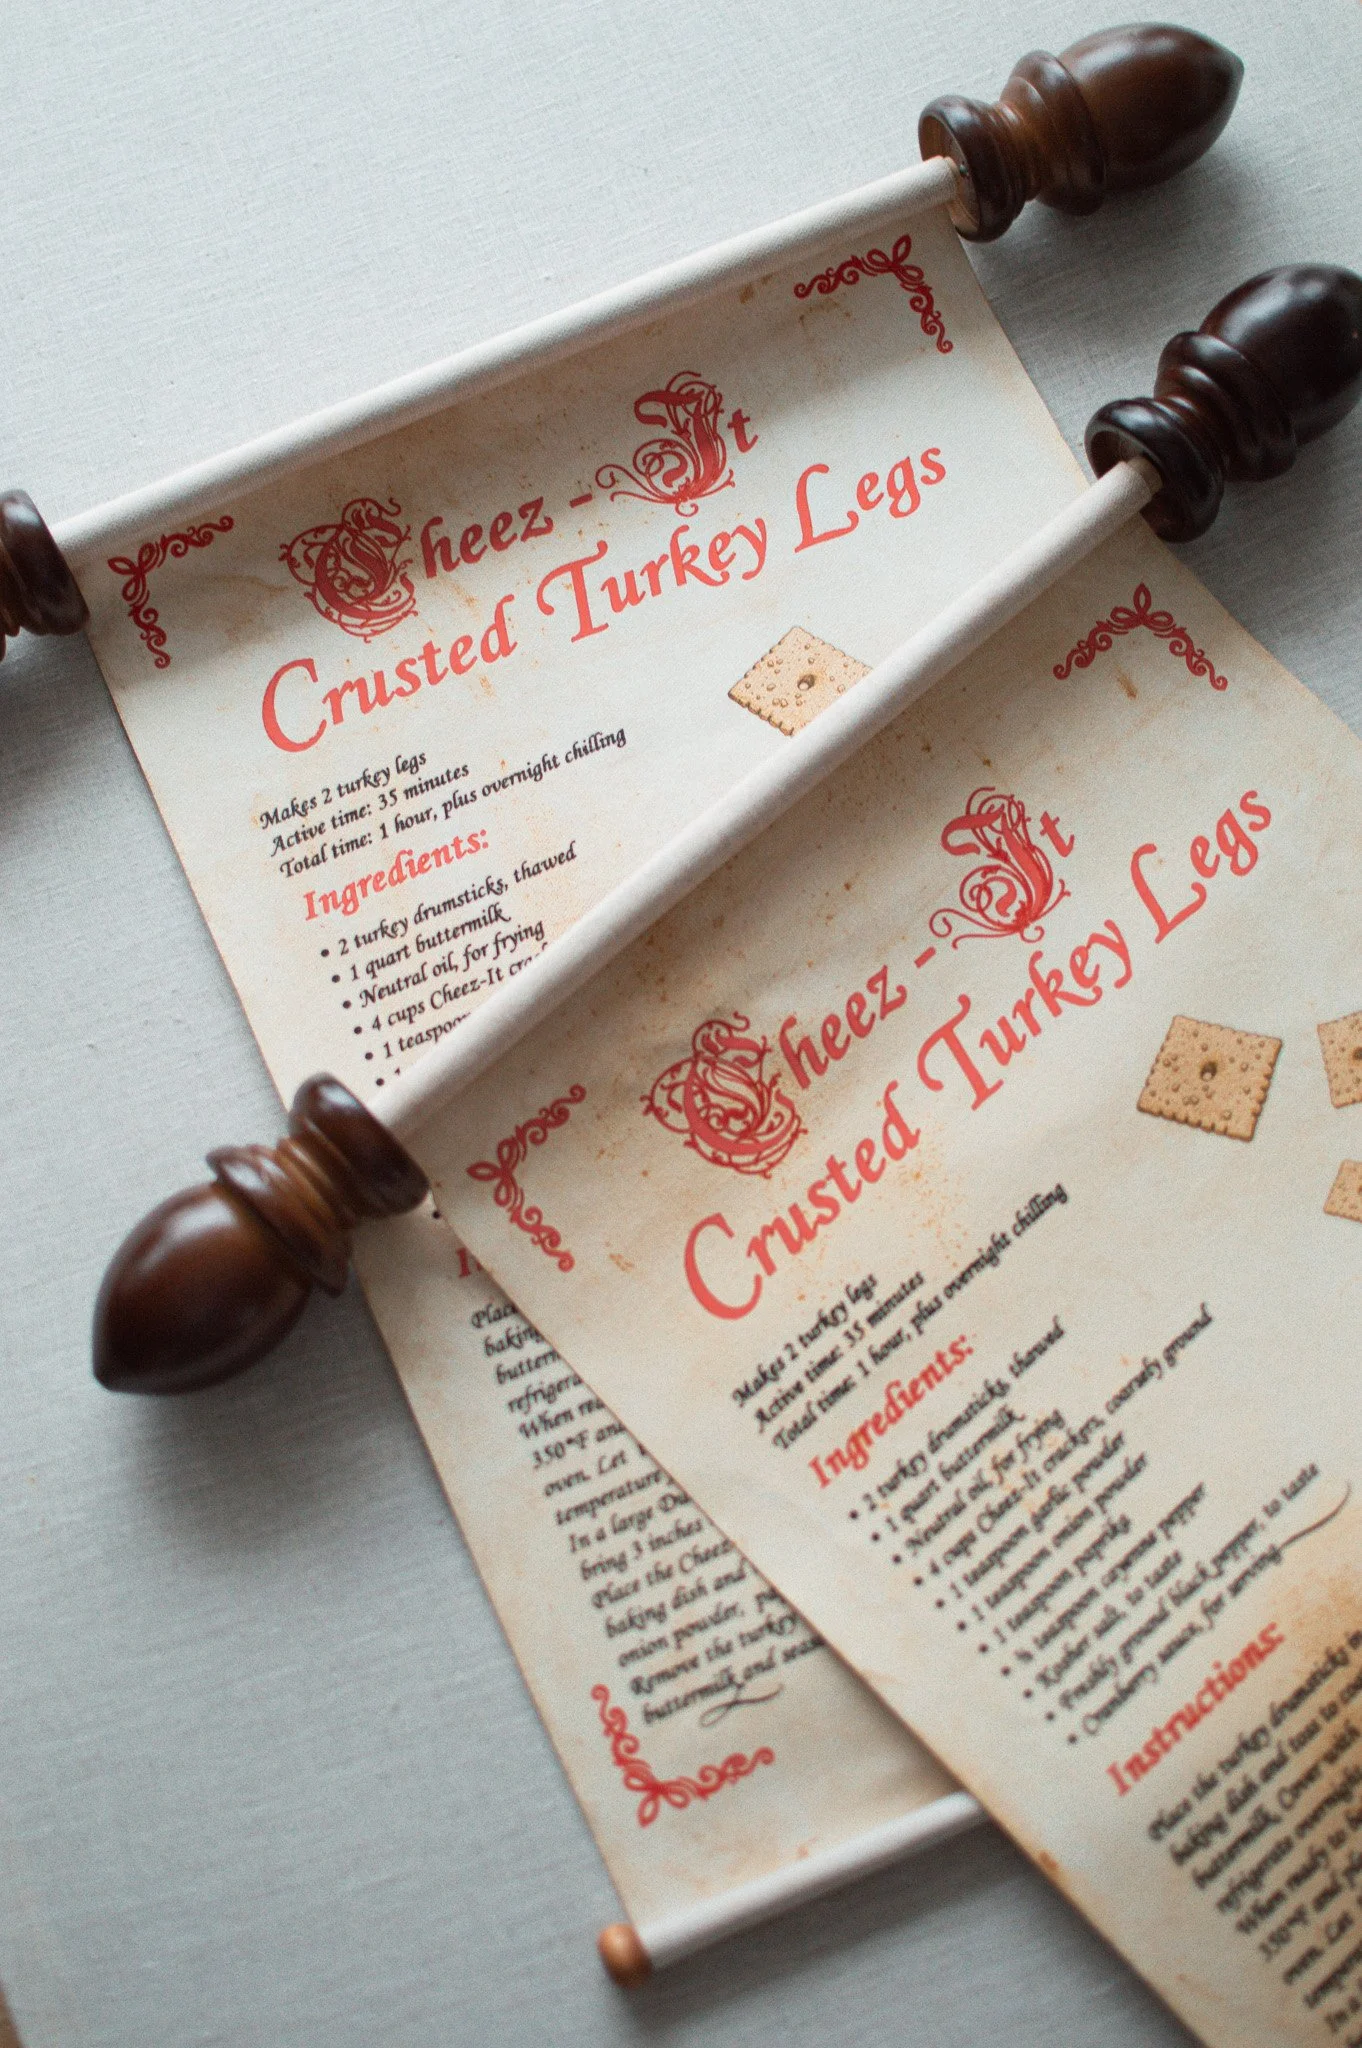 Cheez-It
Crusted Turkey Legs
Makes 2 turkey legs
Active time: 35 minutes
Total time: 1 hour, plus overnight chilling
Ingredients:
• 2 turkey drumsticks, thawed
• 1 quart buttermilk
• Neutral oil, for frying
• 4 cups Cheez-It
• 1 teaspoon
baking
refrigera
When
350°F and
oven. Let
temperature,
In a large
bring 3 inches
Place the Cheez
baking dish and
onion powder,
Remove the turkey
buttermilk and
Cheez-It
Crusted Turkey Legs
Makes 2 turkey legs
Active time: 35 minutes
Total time: 1 hour, plus overnight chilling
Ingredients:
• 2 turkey drumsticks, thawed
• 1 quart buttermilk
• Neutral oil, for frying
• 4 cups Cheez-It crackers, coarsely ground
• 1 teaspoon garlic powder
• 1 teaspoon onion powder
• 1 teaspoon paprika
• ¼ teaspoon cayenne pepper
• Kosher salt, to taste
• Freshly ground black pepper, to taste
• Cranberry sauce, for serving
Instructions:
Place the turkey drumsticks in
baking dish and toss to
buttermilk. Cover with
refrigerate overnight
When ready to
350°F and
oven. Let
In a